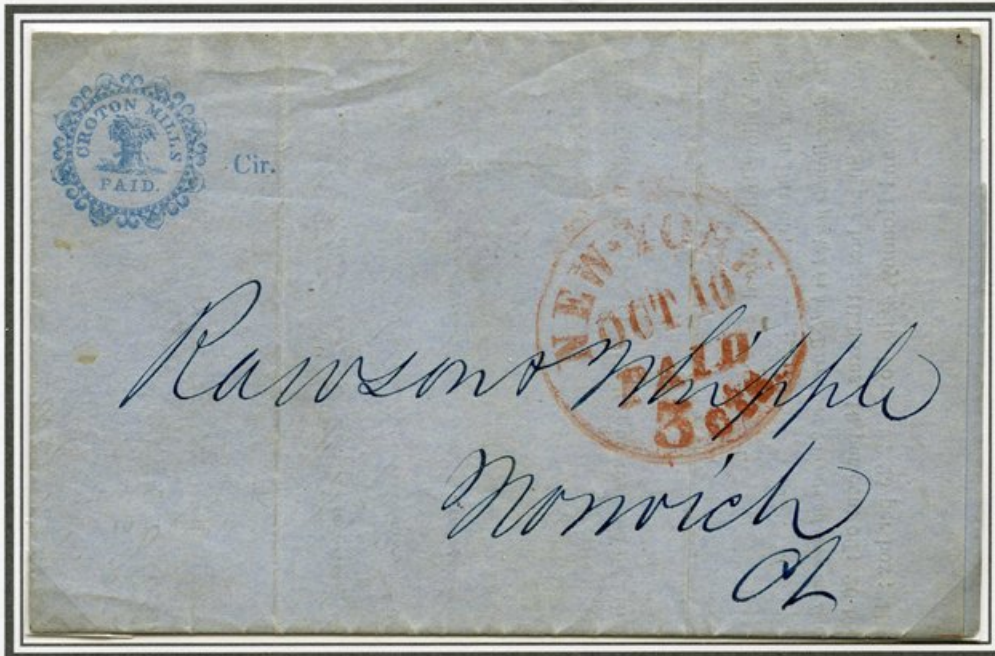 CROTON MILLS
PAID.
Cir.
NEW-YORK
OCT 10
PAID
3 cts
Rawson & Whipple
Norwich
Ct